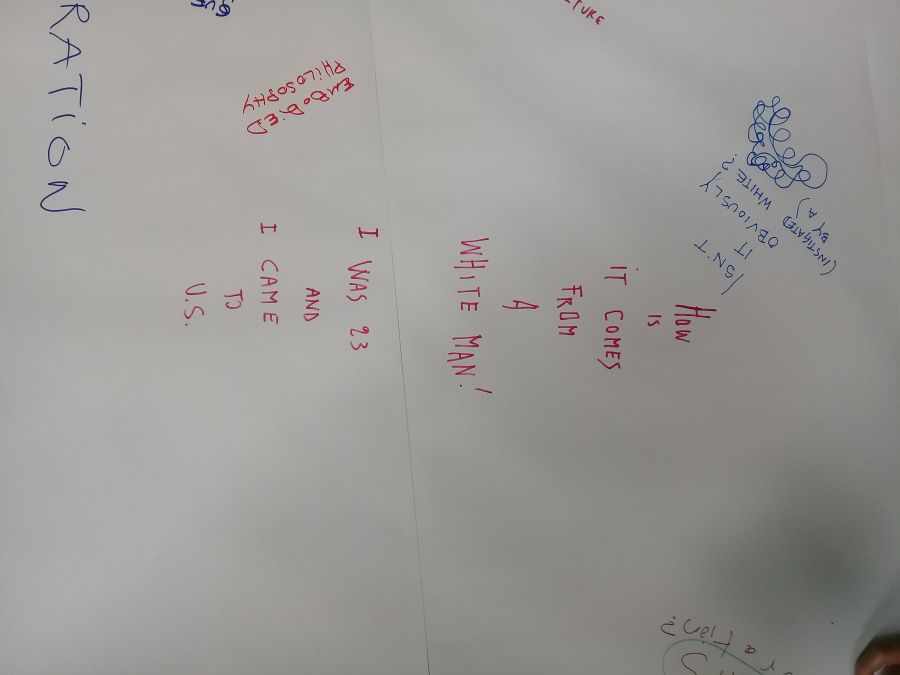 HOW
IS
IT COMES
FROM
A
WHITE MAN!
I WAS 23
AND
I CAME
TO
U.S.
ISN'T
IT
OBVIOUSLY
WHITE?
(INSTIGATED
BY A)
EMBODIED
PHILOSOPHY
RATION